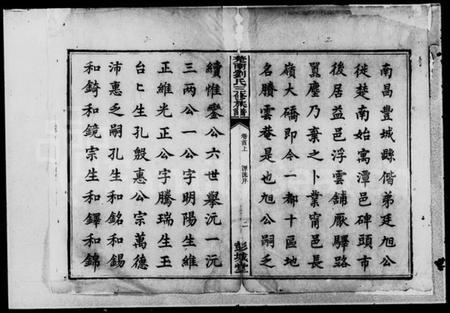 南昌豐城縣偕弟廷旭公
徙楚南始寓潭邑碑頭市
後居益邑浮雲鋪厭驛路
囂塵乃棄之卜業甯邑長
嶺大磻即今一都十區地
名勝雲菴是也旭公嗣之
楚南劉氏三修族譜
卷首上
源流序
二
彭城堂
續惟鑒公六世舉沅一沅
三兩公一公字明陽生維
正維光正公字騰瑞生王
台匕生孔殷惠公宗萬德
沛惠之嗣孔生和銘和錫
和錡和鏡宗生和鐸和錦